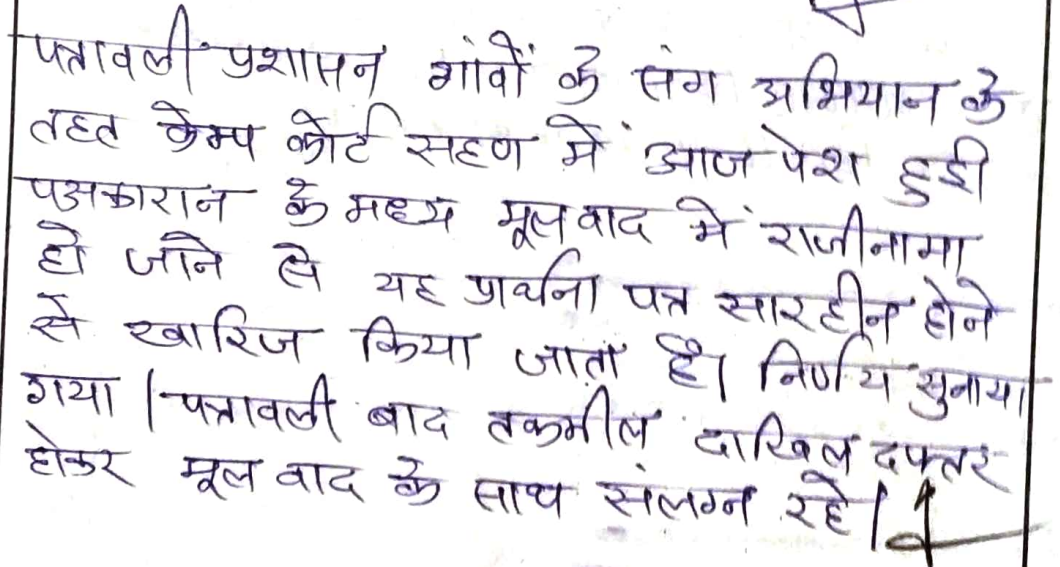 पत्रावली प्रशासन गांवों के संग अभियान के
तहत केम्प कोर्ट सहण में आज पेश हुई
पक्षकारान के मध्य मूल वाद में राजीनामा
हो जाने से यह प्रार्थना पत्र सारहीन होने
से खारिज किया जाता है। निर्णय सुनाया
गया। पत्रावली बाद तकमील दाखिल दफ्तर
होकर मूल वाद के साथ संलग्न रहे।